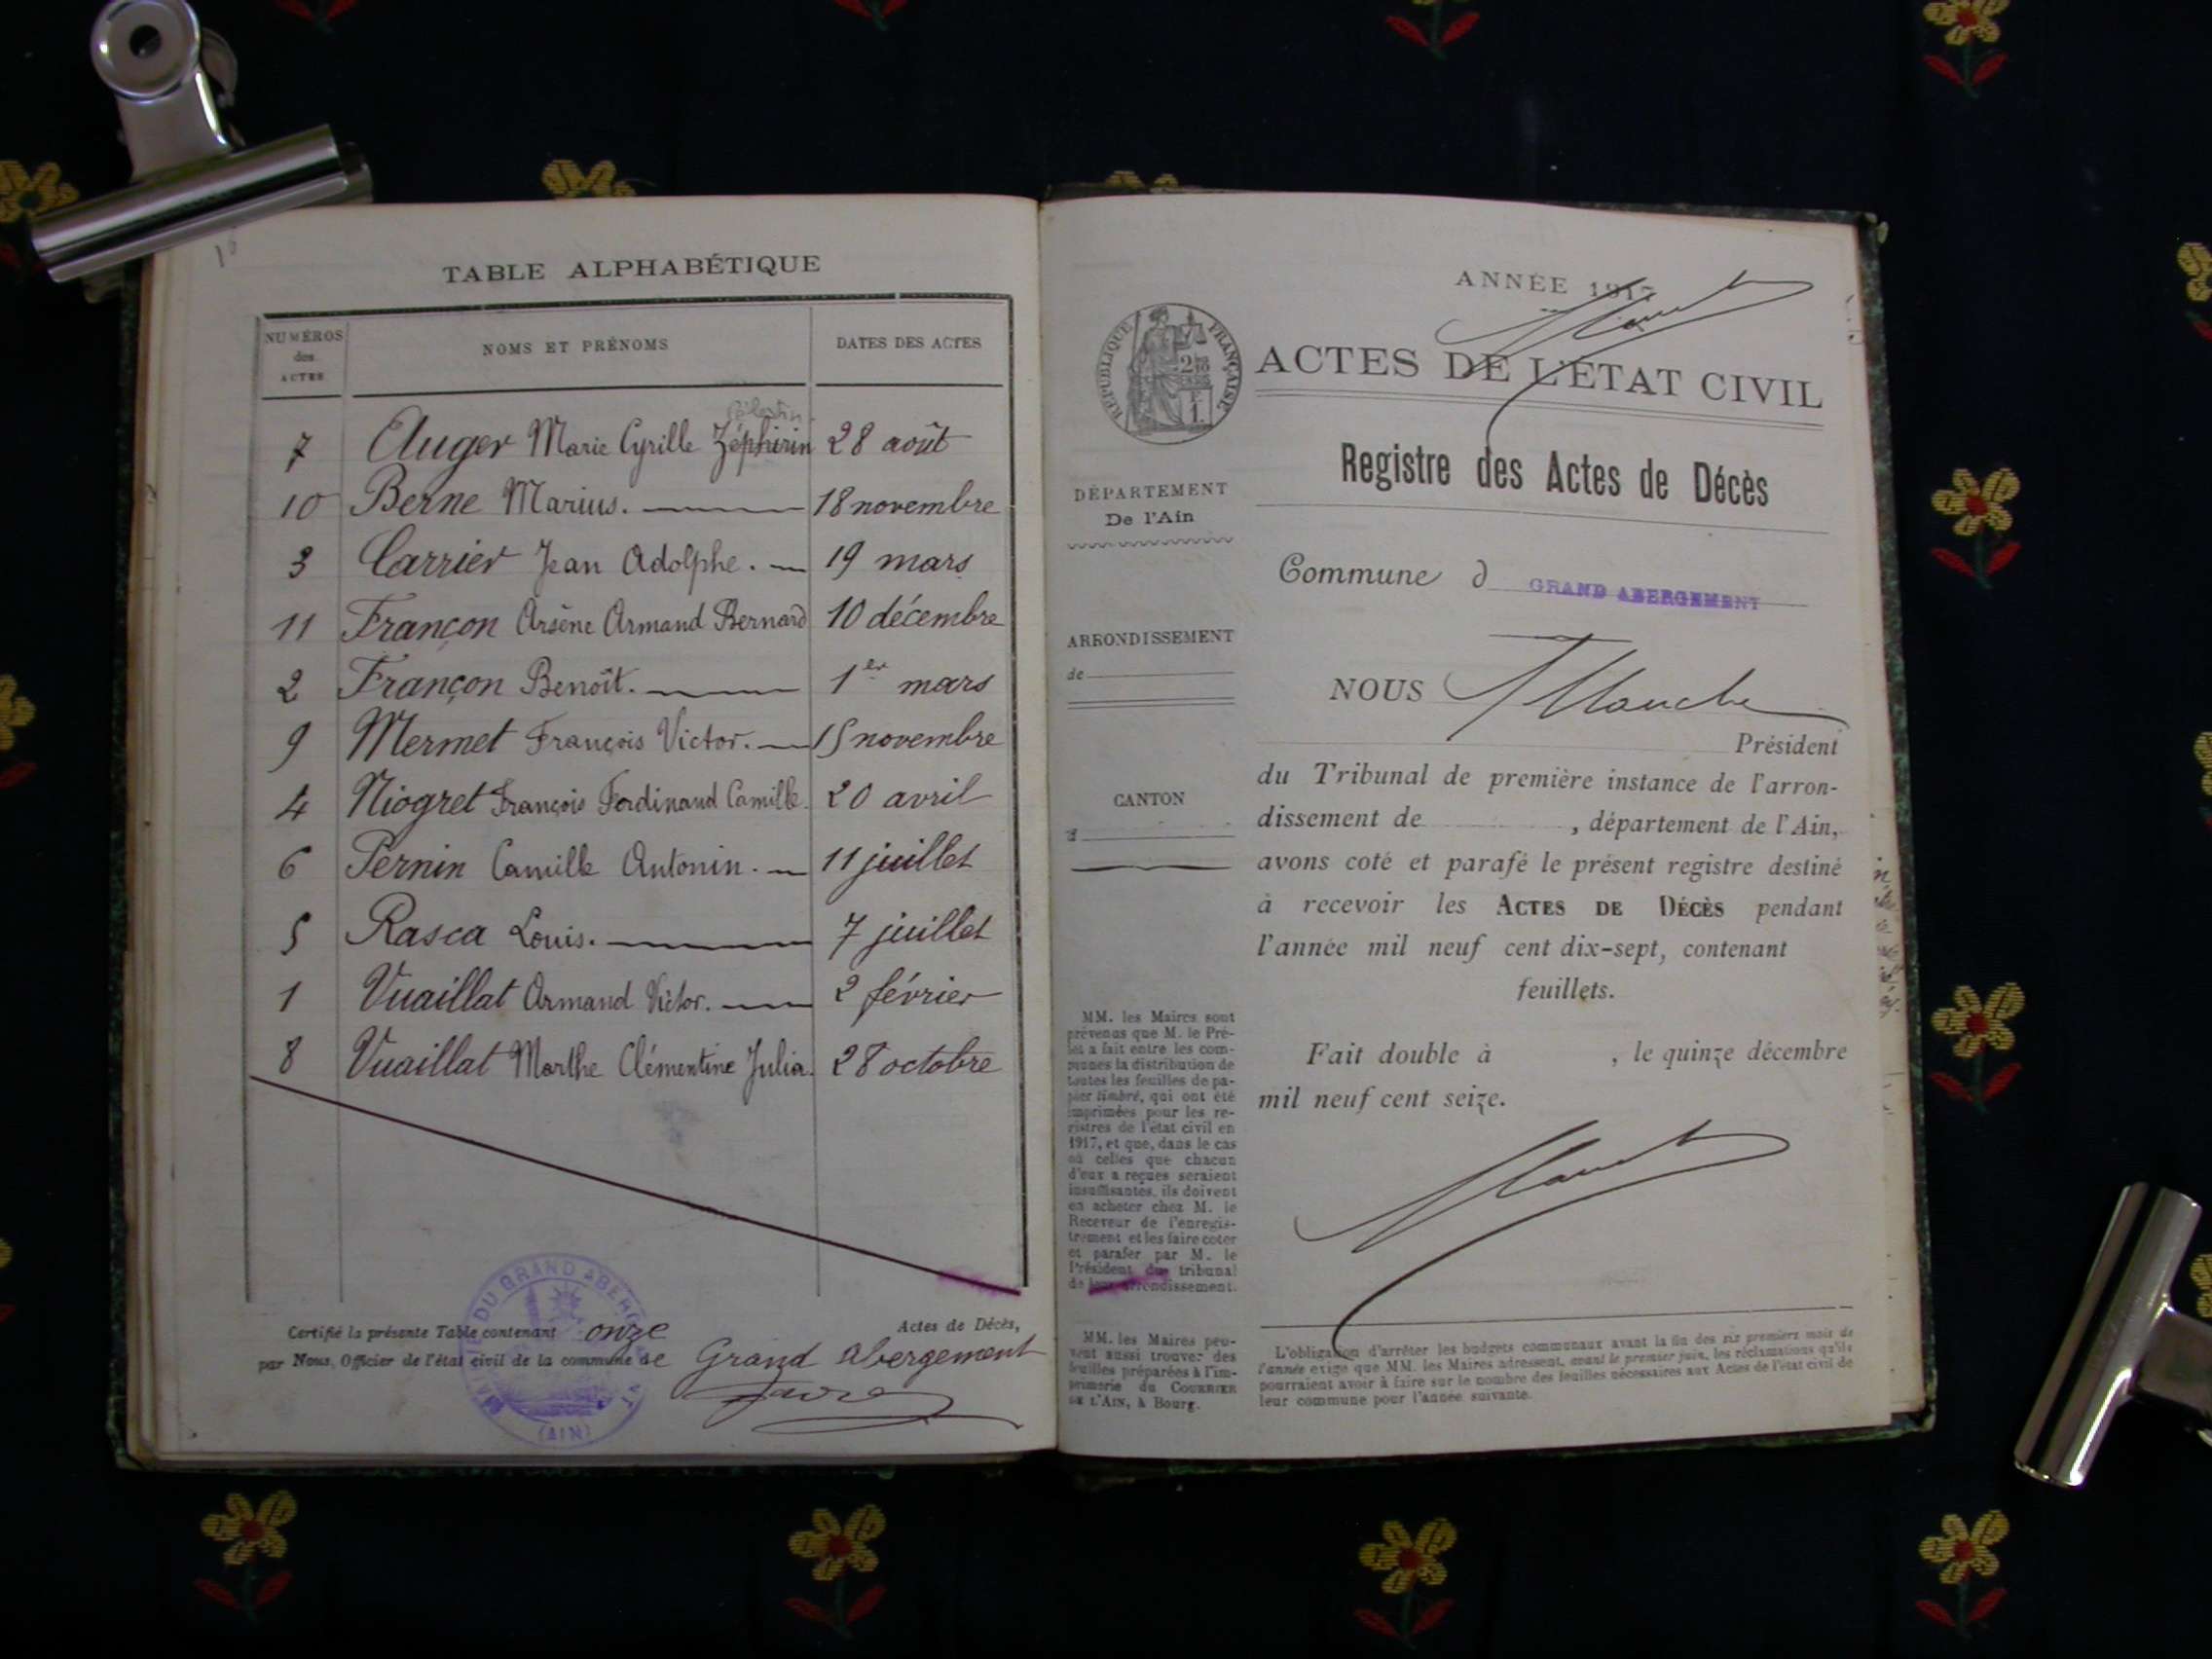 16
TABLE ALPHABÉTIQUE
NUMÉROS des ACTES
NOMS ET PRÉNOMS
DATES DES ACTES
Célestin
7 Auger Marie Cyrille Zéphirin 28 août
10 Berne Marius. 18 novembre
3 Carrier Jean Adolphe. 19 mars
11 Françon Arsène Armand Bernard 10 décembre
2 Françon Benoît. 1er mars
9 Mermet François Victor. 15 novembre
4 Niogret François Ferdinand Camille. 20 avril
6 Pernin Camille Antonin. 11 juillet
5 Rasca Louis. 7 juillet
1 Vuaillat Armand Victor. 2 février
8 Vuaillat Marthe Clémentine Julia. 28 octobre
Certifié la présente Table contenant onze Actes de Décès,
par Nous, Officier de l'état civil de la commune de Grand Abergement
DU GRAND ABERG
(AIN)
ANNÉE 1917
RÉPUBLIQUE FRANÇAISE
ACTES DE L'ÉTAT CIVIL
Registre des Actes de Décès
DÉPARTEMENT
De l'Ain
Commune d GRAND ABERGEMENT
ARRONDISSEMENT
de
CANTON
d
NOUS
Président
du Tribunal de première instance de l'arron-
dissement de , département de l'Ain,
avons coté et parafé le présent registre destiné
à recevoir les ACTES DE DÉCÈS pendant
l'année mil neuf cent dix-sept, contenant
feuillets.
Fait double à , le quinze décembre
mil neuf cent seize.
MM. les Maires sont
prévenus que M. le Pré-
fet a fait entre les com-
munes la distribution de
toutes les feuilles de pa-
pier timbré, qui ont été
imprimées pour les re-
gistres de l'état civil en
1917, et que, dans le cas
où celles que chacun
d'eux a reçues seraient
insuffisantes, ils doivent
en acheter chez M. le
Receveur de l'enregis-
trement et les faire coter
et parafer par M. le
Président du tribunal
de leur arrondissement.
MM. les Maires peu-
vent aussi trouver des
feuilles préparées à l'im-
primerie du COURRIER
DE L'AIN, à Bourg.
L'obligation d'arrêter les budgets communaux avant la fin des six premiers mois de
l'année exige que MM. les Maires adressent, avant le premier juin, les réclamations qu'ils
pourraient avoir à faire sur le nombre des feuilles nécessaires aux Actes de l'état civil de
leur commune pour l'année suivante.